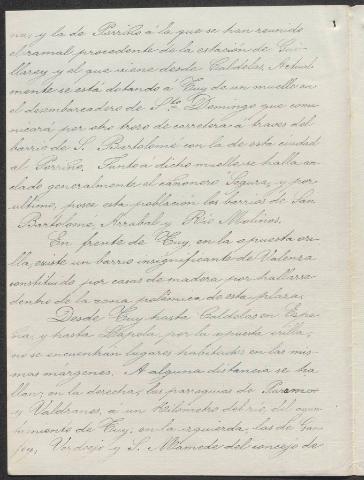 1
nas, y la de Porriño á la que se han reunido
el ramal procedente de la estación de Gui-
llarey y el que viene desde Caldelas. Actual-
mente se está dotando á Tuy de un muelle en
el desembarcadero de Sto. Domingo que comu-
nicará por otro trozo de carretera á través del
barrio de S. Bartolomé con la de esta ciudad
al Porriño. Junto a dicho muelle se halla an-
clado generalmente el cañonero Segura, y por
ultimo, posee esta población los barrios de San
Bartolomé, Arrabal y Rio Molinos.
En frente de Tuy, en la opuesta ori-
lla, existe un barrio insignificante de Valenza
constituido por casas de madera por hallarse
dentro de la zona polémica de esta plaza.
Desde Tuy hasta Caldelas en Espa-
ña, y hasta Lapela por la opuesta orilla,
no se encuentran lugares habitados en las mis-
mas márgenes. A alguna distancia se ha-
llan, en la derecha, las parroquias de Paramos
y Valdranes, á un kilómetro del rio, del ayun-
tamiento de Tuy; en la izquierda, las de Gan-
fey, Verdoejo y S. Mamede del concejo de